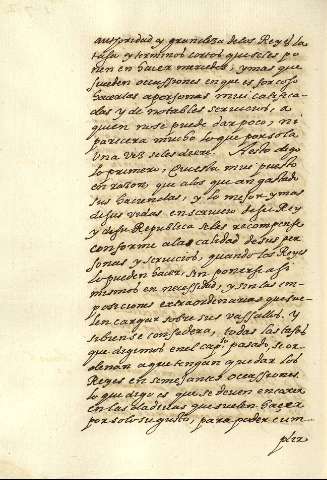 autoridad y grandeza de los Reyes la
tasa y terminos cortos que seles po
nen en hacer mercedes, y mas que
suceden ocassiones en que es forcoso
hacerlas a personas mui califica-
das y de notables servicios, a
quien no se puede dar poco, ni
parecera mucho lo que por sola
una vez se les diere. A esto digo
lo primero, Que esta mui puesto
en razon, que a los que an gastado
sus haciendas, y lo mejor y mas
de sus vidas en servicio de su Rey
y de su Republica se les recompense
conforme a la calidad de sus per
sonas y servicios, quando los Reyes
lo pueden hacer, sin ponerse a si
mismos en necessidad, y sin las im-
posiciones extraordinarias que sue-
len cargar sobre sus vassallos. Y
si bien se considera, todas las cosas
que digimos en el capº pasado, se or
denan a que tengan que dar los
Reyes en semejantes ocassiones.
lo que digo es que se deven escusar
en las dadivas que suelen hacer
por solo su gusto, para poder cum-
plir